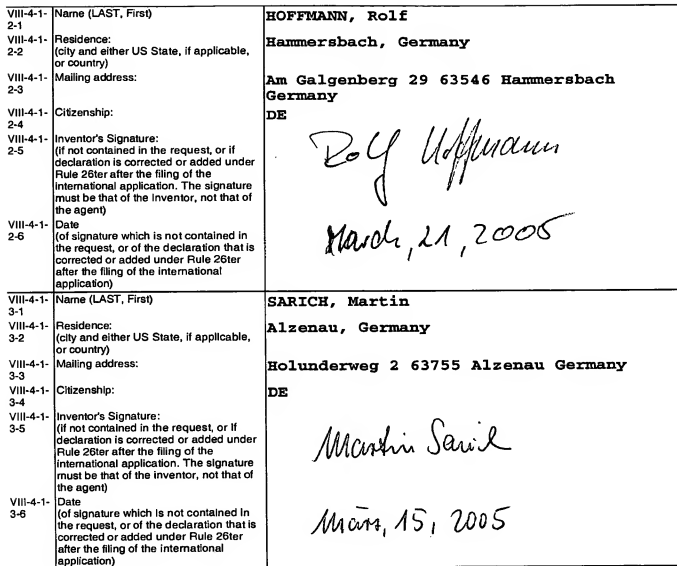 VIII-4-1-2-1 Name (LAST, First) HOFFMANN, Rolf
VIII-4-1-2-2 Residence: (city and either US State, if applicable, or country) Hammersbach, Germany
VIII-4-1-2-3 Mailing address: Am Galgenberg 29 63546 Hammersbach Germany
VIII-4-1-2-4 Citizenship: DE
VIII-4-1-2-5 Inventor's Signature: (if not contained in the request, or if declaration is corrected or added under Rule 26ter after the filing of the international application. The signature must be that of the inventor, not that of the agent) Rolf Hoffmann
VIII-4-1-2-6 Date (of signature which is not contained in the request, or of the declaration that is corrected or added under Rule 26ter after the filing of the international application) March, 21, 2005
VIII-4-1-3-1 Name (LAST, First) SARICH, Martin
VIII-4-1-3-2 Residence: (city and either US State, if applicable, or country) Alzenau, Germany
VIII-4-1-3-3 Mailing address: Holunderweg 2 63755 Alzenau Germany
VIII-4-1-3-4 Citizenship: DE
VIII-4-1-3-5 Inventor's Signature: (if not contained in the request, or if declaration is corrected or added under Rule 26ter after the filing of the international application. The signature must be that of the inventor, not that of the agent) Martin Sarich
VIII-4-1-3-6 Date (of signature which is not contained in the request, or of the declaration that is corrected or added under Rule 26ter after the filing of the international application) März, 15, 2005